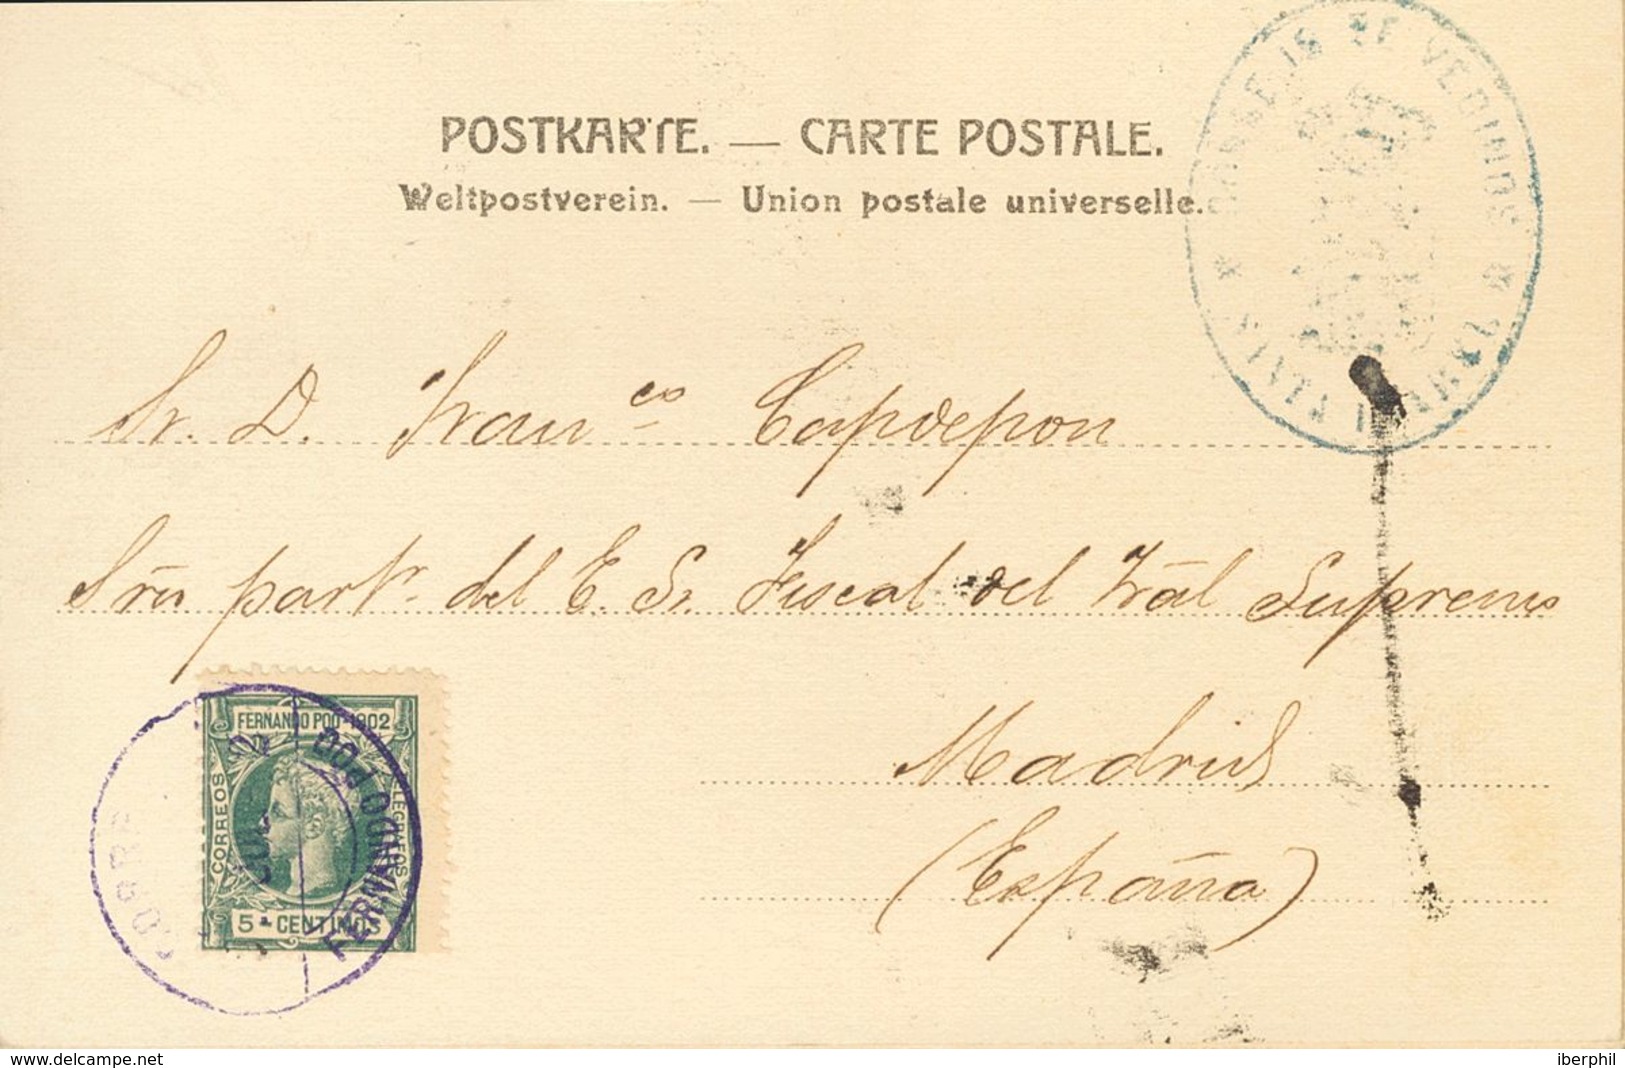 POSTKARTE. — CARTE POSTALE.
Weltpostverein. — Union postale universelle.
CONSEJO DE VECINOS
Sr. D. Franco Capdepon
Srio partr del E. Sr. Fiscal del Tral Supremo
Madrid
(España)
FERNANDO POO-1902
CORREOS
TELEGRAFOS
5-CENTIMOS
FERNANDO POO
www.delcampe.net
iberphil